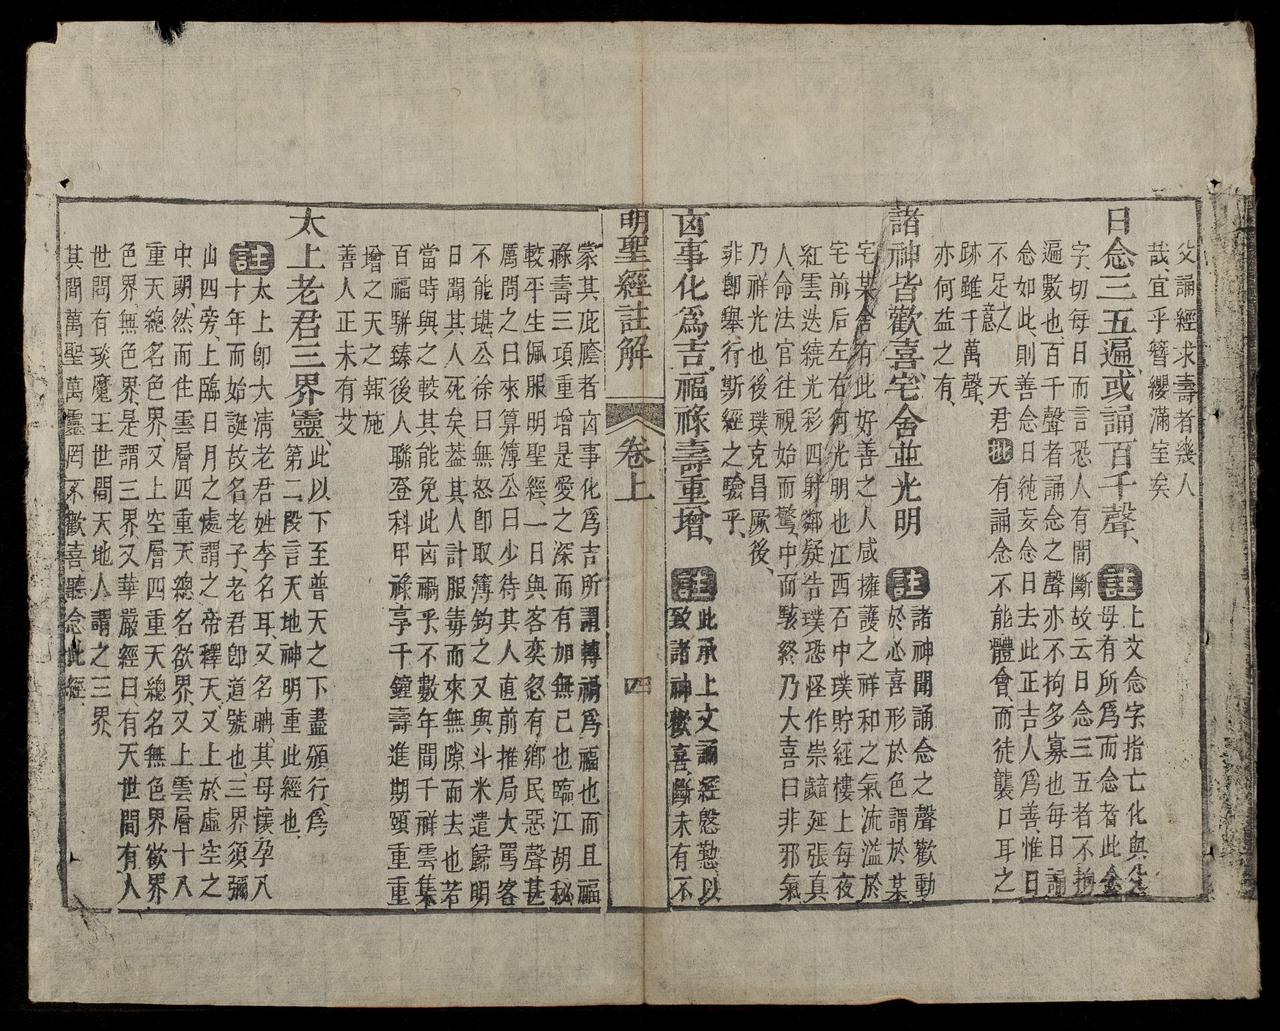 父誦經求壽者幾人
哉宜乎簪纓滿室矣
日念三五遍或誦百千聲、
註
上文念字指亡化與生
母有所爲而念者此念
字、切每日而言恐人有間斷故云日念三五者不拘
遍數也百千聲者誦念之聲亦不拘多寡也每日誦
念如此則善念日純妄念日去此正吉人爲善、惟日
不足之意 天君批有誦念不能體會而徒襲口耳之
跡雖千萬聲、
亦何益之有
諸神皆歡喜宅舍並光明
註
諸神聞誦念之聲歡動
於心喜形於色謂於某
宅某舍有此好善之人咸擁護之祥和之氣流溢於
宅前后左右何光明也江西石中璞貯經樓上每夜
紅雲迭繞光彩四射鄰疑告璞恐怪作祟諱延張真
人命法官往視始而驚、中而駭終乃大喜曰非邪氣
乃祥光也後璞克昌厥後、
非卽舉行斯經之驗乎、
凶事化爲吉福祿壽重增、
註
此承上文誦經慇懃以
致諸神歡喜斷未有不
明聖經註解 卷上 四
蒙其庇廕者凶事化爲吉所謂轉禍爲福也而且福
祿壽三項重增是愛之深而有加無已也臨江胡秘
較平生佩服明聖經一日與客奕忽有鄉民惡聲甚
厲問之曰來算簿公曰少待其人直前推局大罵客
不能堪公徐曰無怒卽取簿鈎之又與斗米遣歸明
日聞其人死矣葢其人計服毒而來無隙而去也若
當時與之較其能免此凶禍乎不數年間千祥雲集
百福駢臻後人聯登科甲祿享千鐘壽進期頤重重
增之天之報施
善人正未有艾
太上老君三界靈、
此以下至普天之下盡頒行、爲
第二段言天地神明重此經也、
註太上卽大清老君姓李名耳、又名聃、其母懷孕八
十年而始誕故名老子、老君卽道號也、三界須彌
山四旁、上臨日月之處謂之帝釋天、又上於虛空之
中朗然而住雲層四重天總名欲界、又上雲層十八
重天總名色界、又上空層四重天總名無色界欲界
色界無色界是謂三界又華嚴經曰有天世間有人
世間有琰魔王世間天地人謂之三界、
其間萬聖萬靈罔不歡喜聽念此經